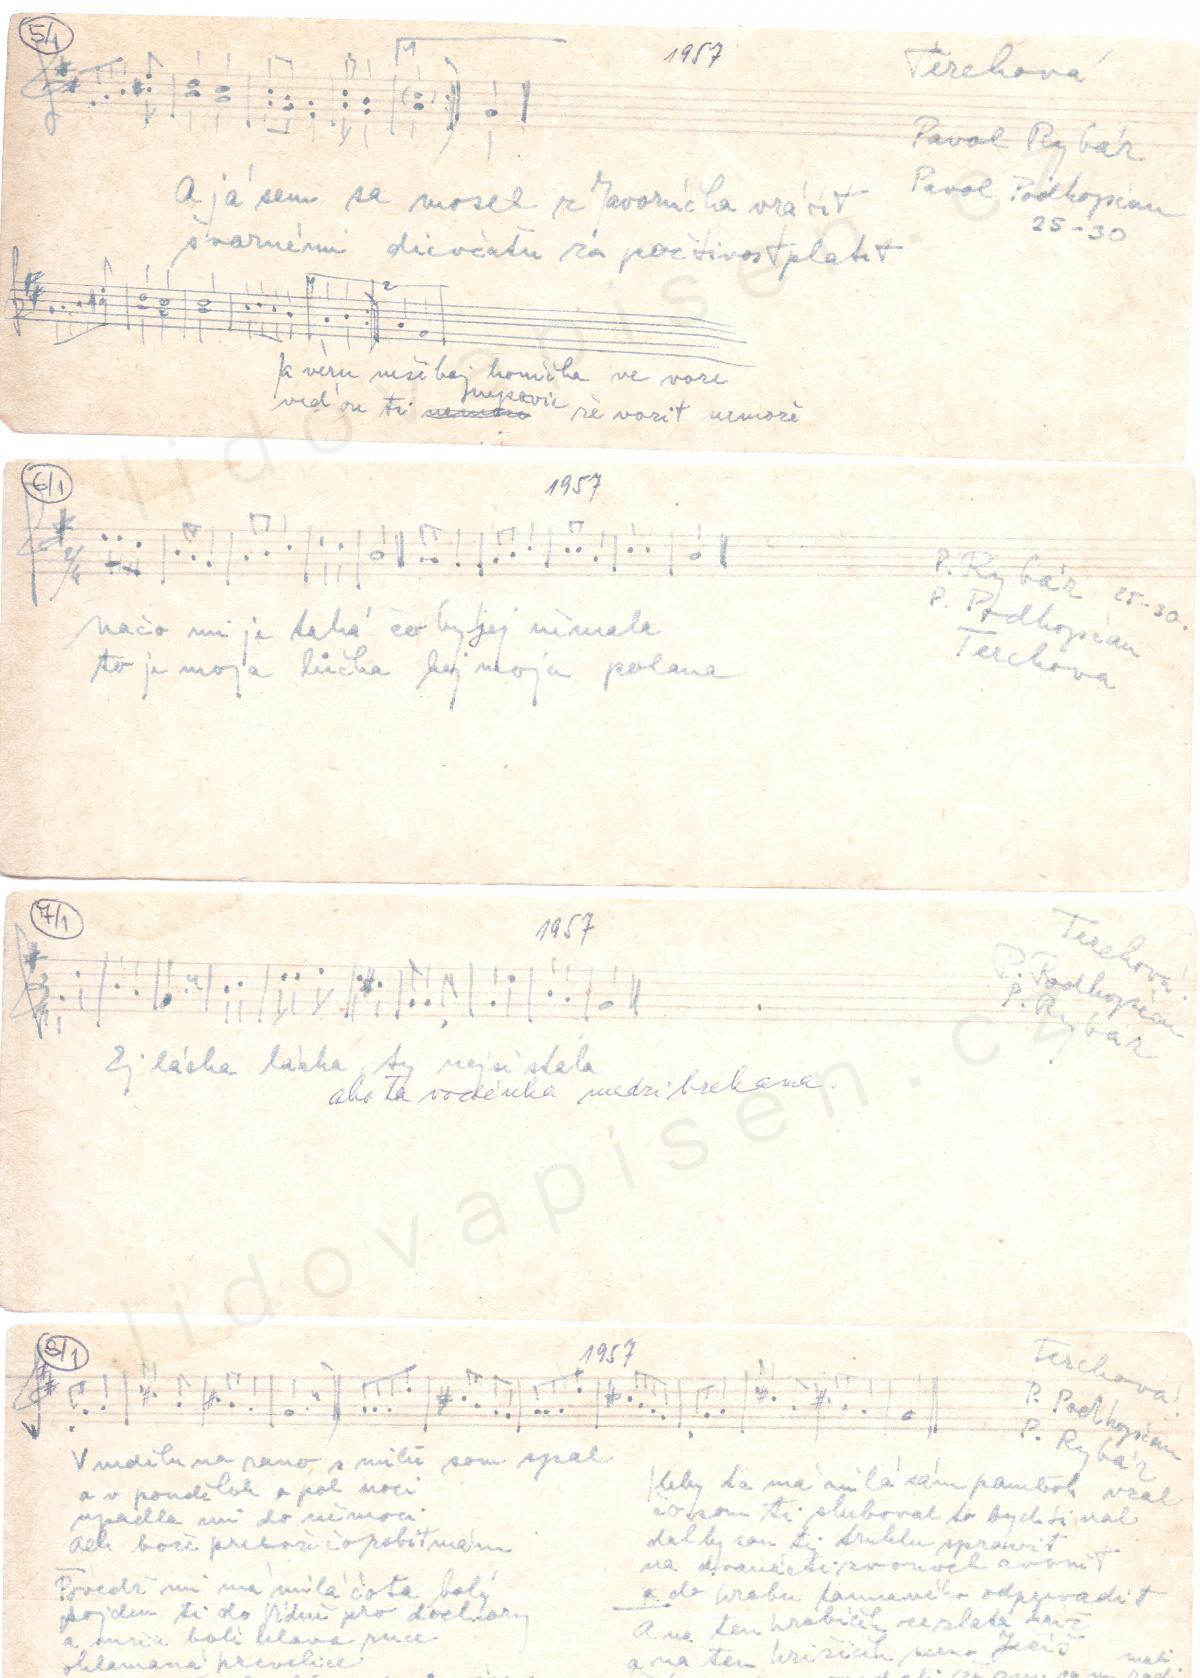 5/1
1957
Terchová
Pavol Rybár
Pavol Podhopcan
25-30
A já sem sa mosel z Javorníčka vrátit
švarnému dievčatu za poctivost platit
2
nešibaj koníčka ve voze
ti nepovie že vozit nemože
6/1
1957
2/4
P. Rybár 25-30.
P. Podhopcan
Terchova
Načo mi je taká čo by jej něměla
to je moja lučka hej moja polana
7/1
1957
Terchová
P. Podhopcan
P. Rybár
Ej láska láska ty nejsi stála
ako ta voděnka medzi brehama.
8/1
1957
Terchová
P. Podhopcan
P. Rybár
V neďelu na rano s milú som spal
a v pondělok o pol noci
upadla mi do němoci
Ach bože prebože čo robit mám
Povědz mi má milá čo ta bolí
pojdem ti do pro doktory
a bolí hlava ruce
oklamaná prevelice
Keby ta má milá sám pamboh vzal
čo som ti sluboval to bych ti nal
dal by som tej truhlu spravit
na dvanácti zvonoch zvonit
do hrobu odprovadit
A na tem hrobičku ze zlata kríž
a na tem križičku meno Ježíš